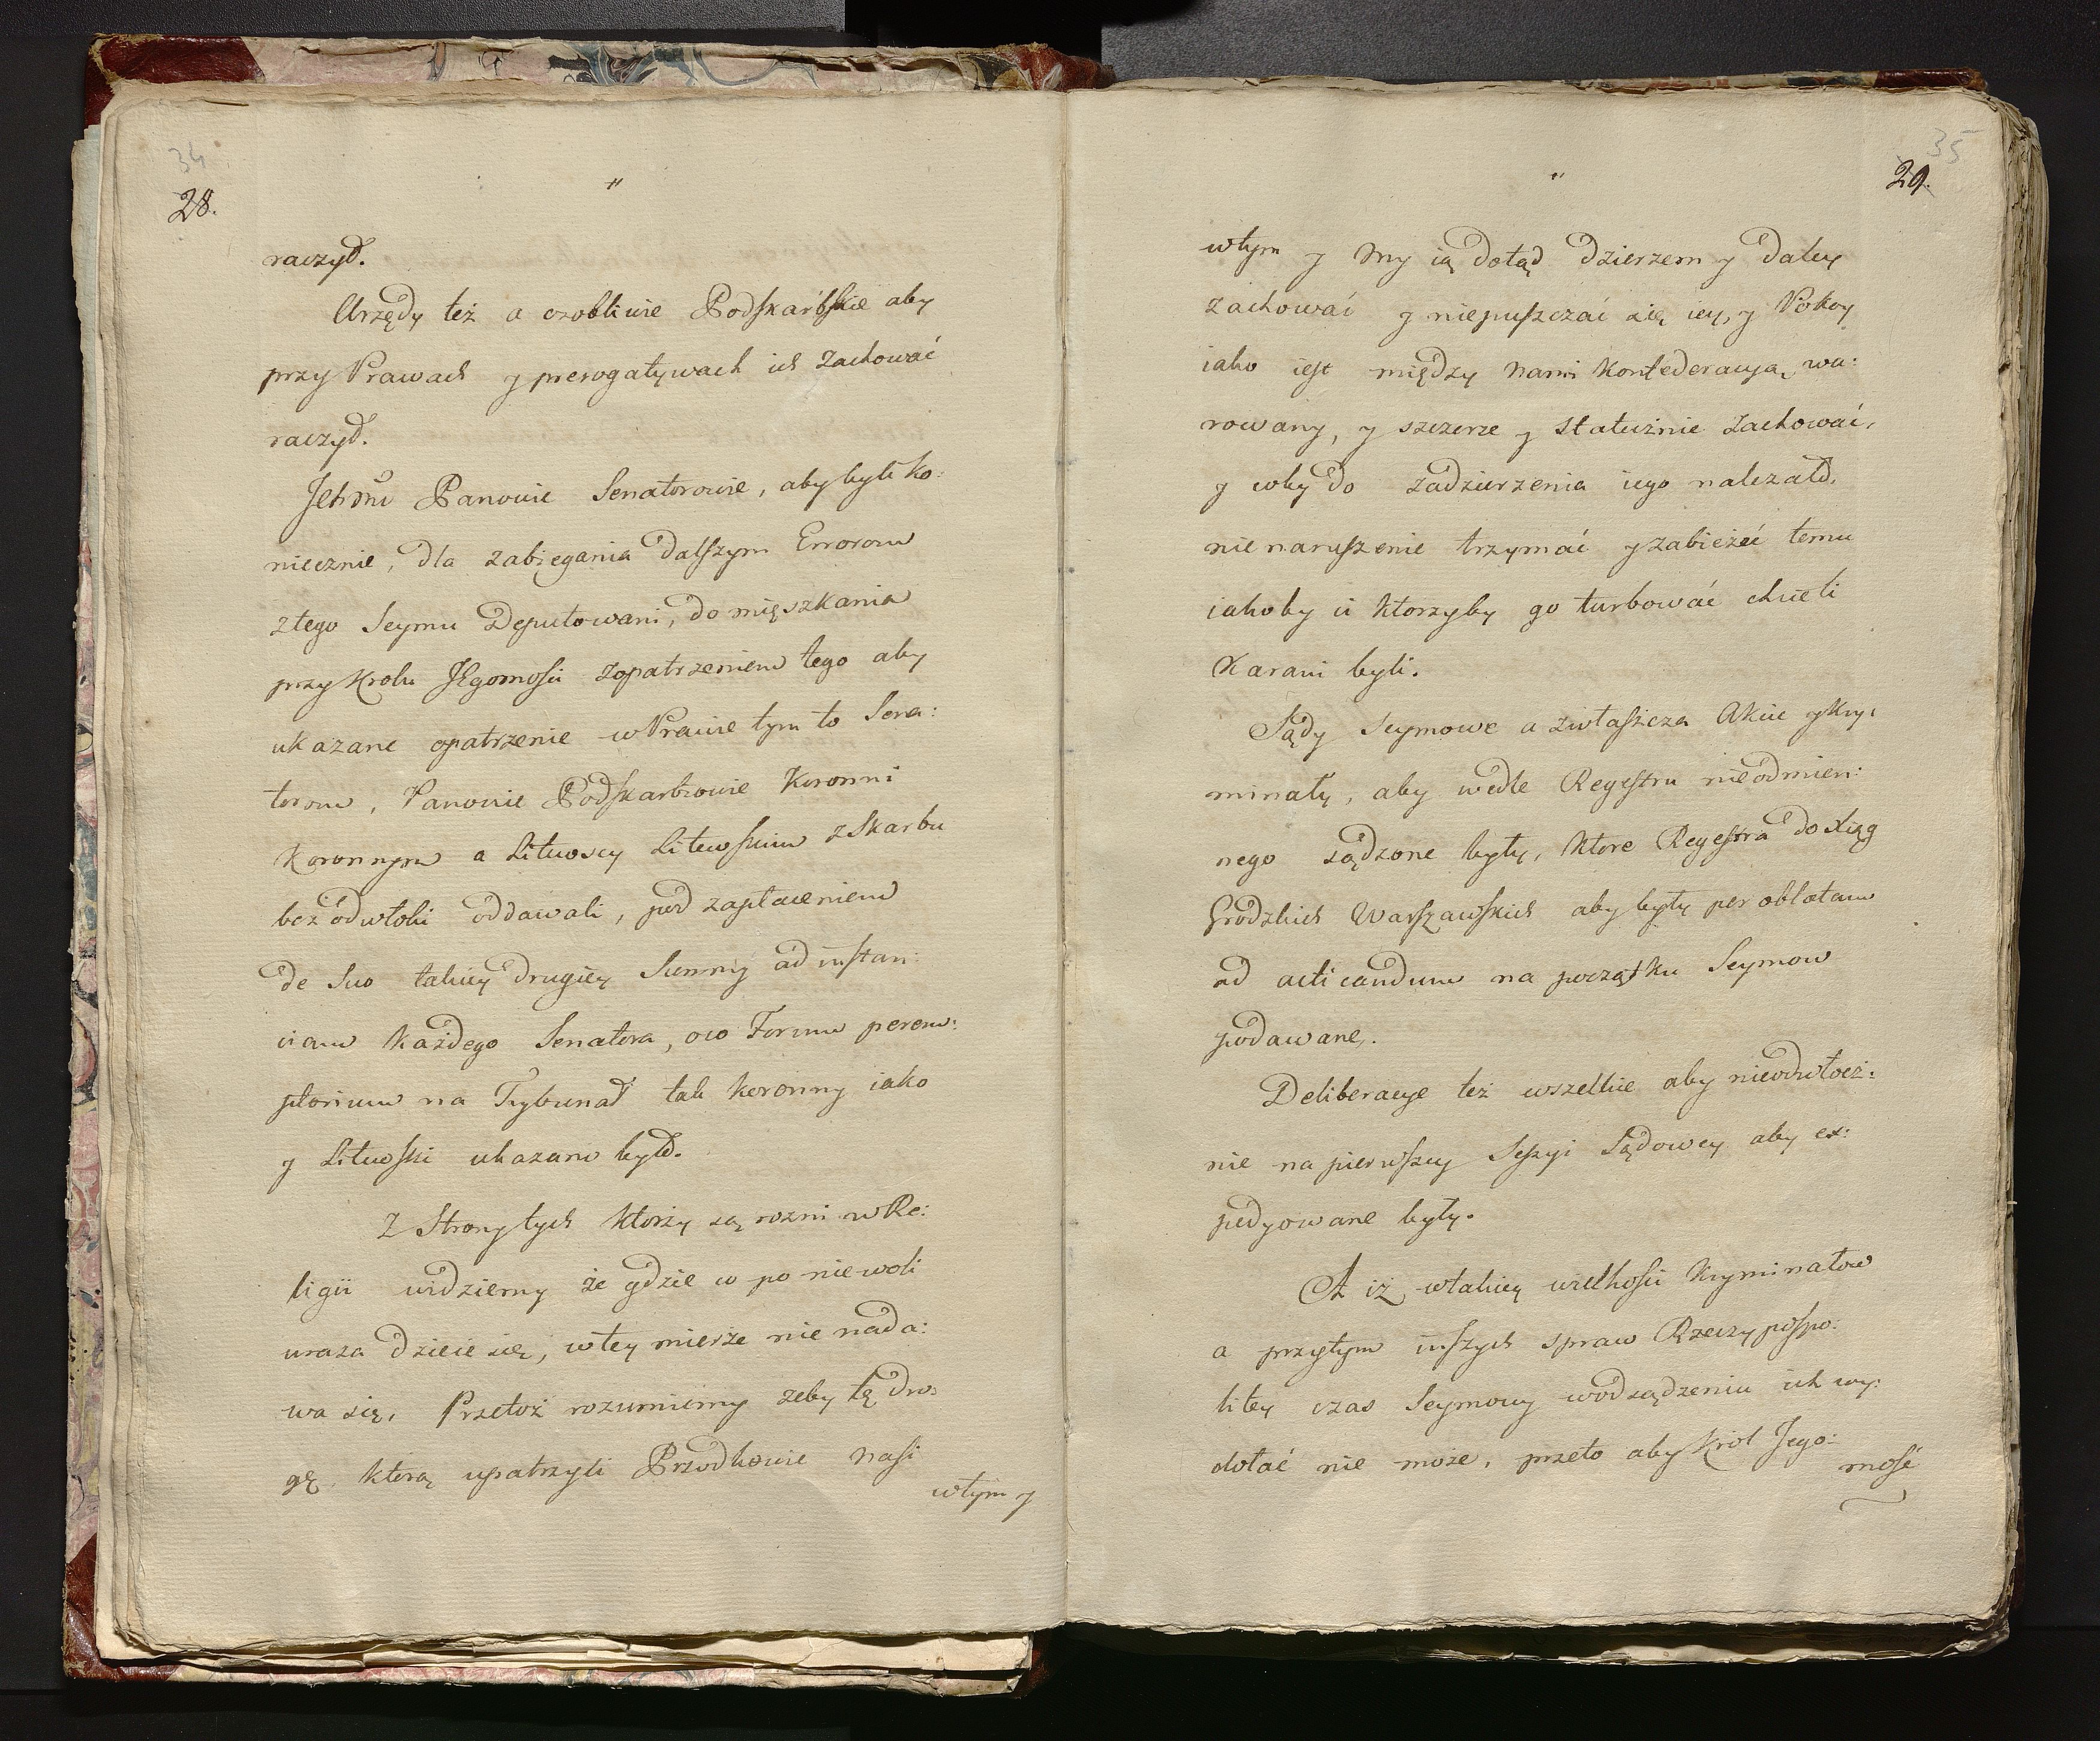 34
28.
"
raczył.
Urzędy też a osobliwie Podskarbskie aby
przy Prawach y prerogatywach ich zachować
raczył.
Jchmc Panowie Senatorowie, aby byli ko:
niecznie, dla zabiegania dalszym Errorom
z tego Seymu Deputowani, do mięszkania
przy Krolu JEgomości z opatrzeniem tego aby
ukazane opatrzenie w Prawie tym to Sena:
torom, Panowie Podskarbiowie Koronni
Koronnym a Litwoscy Litewskim z Skarbu
bez odwłoki oddawali, pod zapłaceniem
de suo takiey drugiey Summy ad instan:
ciam każdego Senatora, oco Forum perem:
ptorium na Trybunał tak koronny iako
y Litewski ukazano było.
Z Strony tych ktorzy są rozni w Re:
ligii widziemy że gdzie co po niewoli
uraza dzieie się, w tey mierze nie nada:
wa się, Przetoż rozumiemy żeby tę dro:
gę, ktorą upatrzyli Przodkowie nasi
wtym y
35
29.
"
wtym y my ią dotąd dzierzem y daley
zachować y niepuszczać się iey, y Pokoy
iako iest między nami konfederacyą wa:
rowany, y szczerze y statecznie zachować,
y coby do zadzierzenia iego należało,
nienaruszenie trzymać y zabieżeć temu
iakoby ci ktorzyby go turbować chcieli
karani byli.
Sądy Seymowe a zwłaszcza Akcie y Kry:
minały, aby wedle Regestru nieodmien:
nego sądzone były, ktore Regestra do Xiąg
Grodzkich Warszawskich aby były per oblatam
ad acticandum na początku Seymow
podawane.
Deliberacye też wszelkie aby nieodwłocz:
nie na pierwszey Sessyi Sądowey aby ex:
pedyowane były.
A iż w takiey wielkości kryminałow
a przytym inszych spraw Rzeczypospo:
litey czas Seymowy w odsądzeniu ich wy:
dołać nie może, przeto aby Krol Jego:
mość